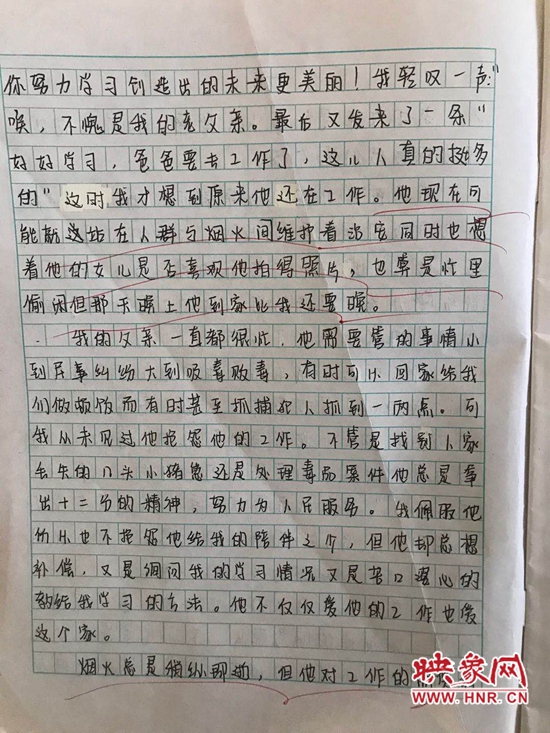 你努力学习创造出的未来更美丽！我轻叹一声："
唉，不愧是我的老父亲。最后又发来了一条"
好好学习，爸爸要去工作了，这儿人真的挺多
的"这时我才想到原来他还在工作。他现在可
能就这站在人群与烟火间维护着治安同时也想
着他的女儿是否喜欢他拍得照片，也算是忙里
偷闲但那天晚上他到家比我还要晚。
我的父亲一直都很忙，他需要管的事情小
到民事纠纷大到吸毒贩毒，有时可以回家给我
们做顿饭而有时甚至抓捕犯人抓到一两点。可
我从未见过他抱怨他的工作。不管是找别人家
丢失的几头小猪崽还是处理毒品案件他总是拿
出十二分的精神，努力为人民服务。我佩服他
的从也不抱怨他给我的陪伴之少，但他却总想
补偿，又是细问我的学习情况又是苦口婆心的
教给我学习的方法。他不仅仅爱他的工作也爱
这个家。
烟火总是稍纵即逝，但他对工作的
映象网
WWW.HNR.CN